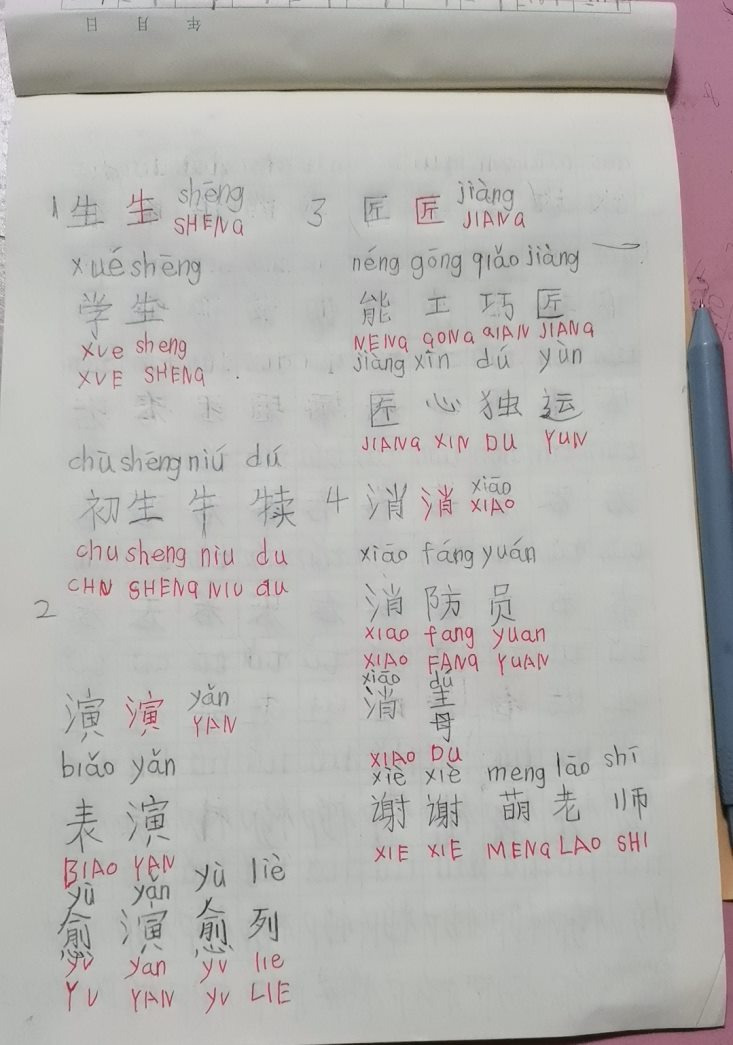 年 月 日
1 生 生 shēng
SHENG
xué shēng
学 生
xue sheng
XVE SHENG
chū shēng niú dú
初 生 牛 犊
chu sheng niu du
CHU SHENG NIU du
2
演 演 yǎn
YAN
biǎo yǎn
表 演
BIAO YAN
yù yǎn yù liè
愈 演 愈 列
yv yan yv lie
YV YAN yv LIE
3 匠 匠 jiàng
JIANG
néng gōng qiǎo jiàng
能 工 巧 匠
NENG GONG QIAN JIANG
jiàng xīn dú yùn
匠 心 独 运
JIANG XIN DU YUN
4 消 消 xiāo
XIAO
xiāo fáng yuán
消 防 员
xiao fang yuan
XIAO FANG YUAN
xiāo dú
消 毒
XIAO DU
xiè xiè meng lāo shī
谢 谢 萌 老 师
XIE XIE MENG LAO SHI